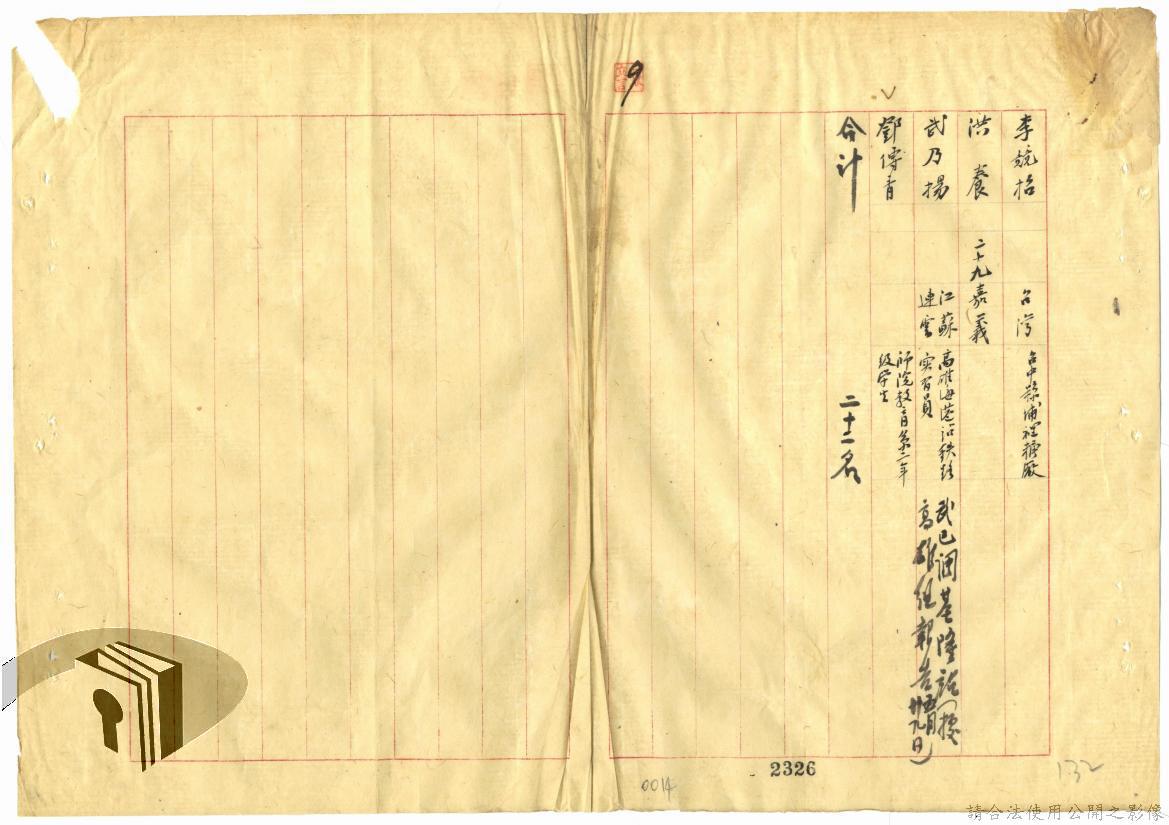 李兢招 台灣 台中縣埔裡糖厰
洪養 二十九 嘉義
武乃揚 江蘇連雲 高雄海港沿鉄路实習員 武已調基隆站(據高雄組報告五月廿九日)
鄧傳青 師院教育系二年級学生
合计 二十二名
9
2326
0014
132
請合法使用公開之影像